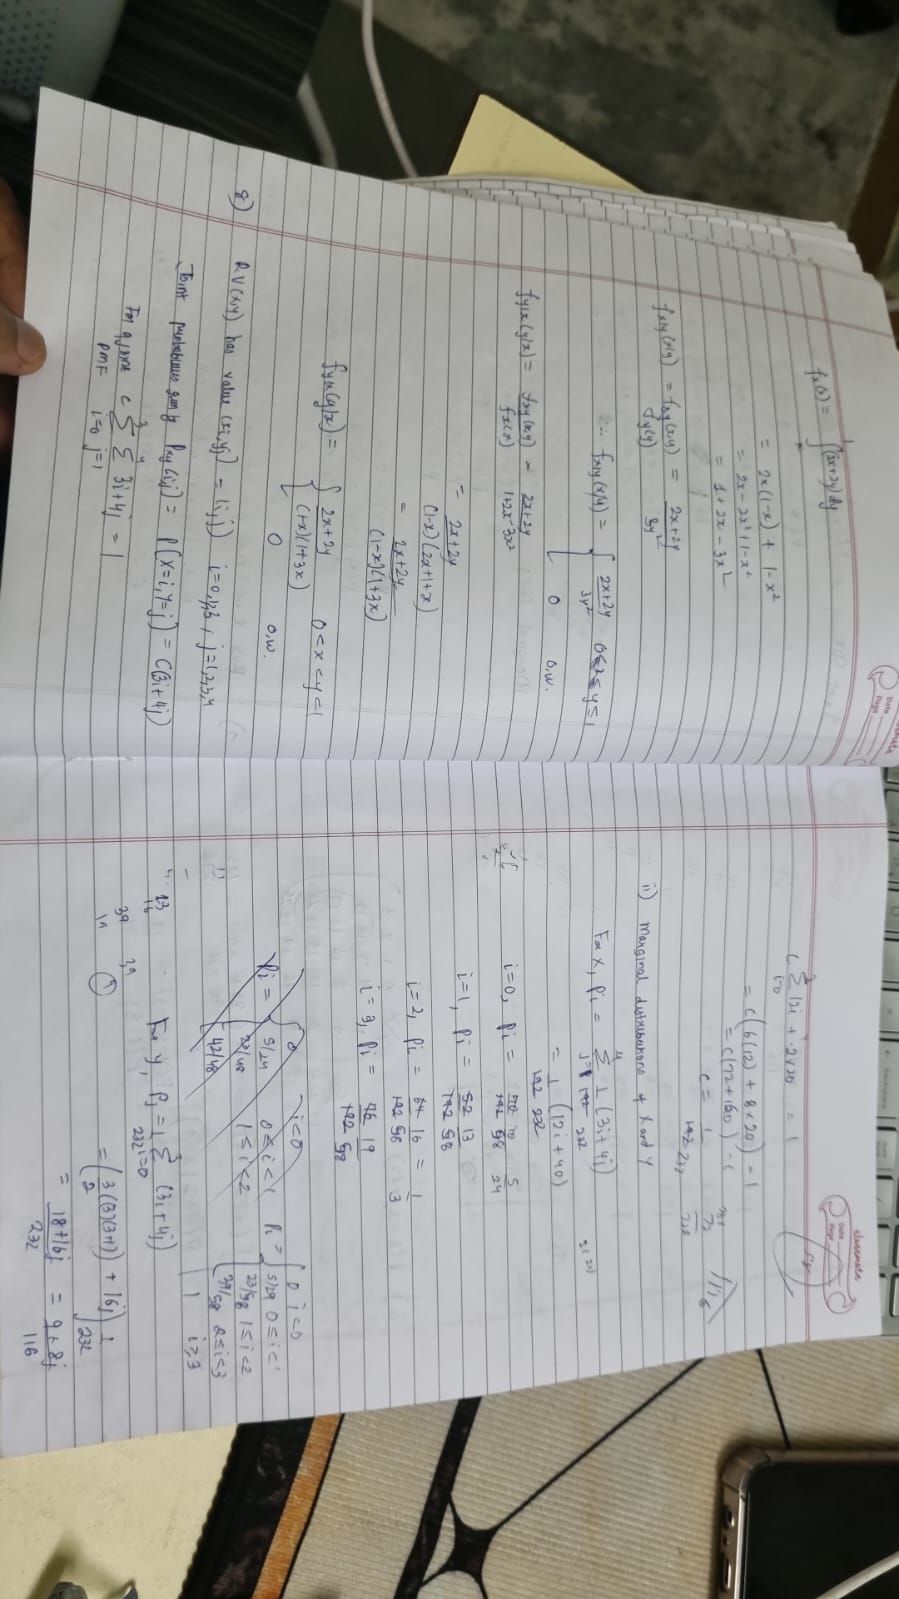 classmate
Date
Page
fx(x) = ∫(2x+2y) dy
= 2x(1-x) + 1-x²
= 2x - 2x² + 1 - x²
= 1 + 2x - 3x²
fx|y(x|y) = fxy(x,y) / fy(y) = 2x+2y / 3y²
∴ fx|y(x|y) = { 2x+2y / 3y²
0 o.w.
fy|x(y|x) = fxy(x,y) / fx(x) = 2x+2y / 1+2x-3x²
= 2x+2y / (1-x)(2x+1+x)
= 2x+2y / (1-x)(1+3x)
fy|x(y|x) = { 2x+2y / (1-x)(1+3x) 0<x<y<1
0 o.w.
8) RV(x,y) has value (xi,yj) = (i,j) j=1,2,3,4
Joint Pxy(i,j) = P[X=i, Y=j] = C(3i+4j)
For joint PMF c 3Σi=0 4Σj=1 3i+4j = 1
classmate
Date
Page
= c(6(12) + 8×20) = 1
= c(72+160)
c = 1 / 232
ii) Marginal distributions of X and Y
For X, Pi = 4Σj=1 1/232 (3i+4j)
= 1/232 (12i+40)
i=0, Pi = 10/58 5/24
i=1, Pi = 52/192 13/58
i=2, Pi = 64/192 16/58 = 1/3
i=3, Pi = 76/192 19/58
Pi = { 0 i<0
5/24 0≤i<1
1≤i<2
42/48
Pi = { 0 i<0
5/29 0≤i<1
23/58 1≤i<2
39/58 2≤i<3
1 i≥3
13
16
39
19
39
For Y, Pj = 1/232 3Σi=0 (3i+4j)
= (3(3)(3+1)/2 + 16j) 1/232
= 18+16j / 232 = 9+8j / 116